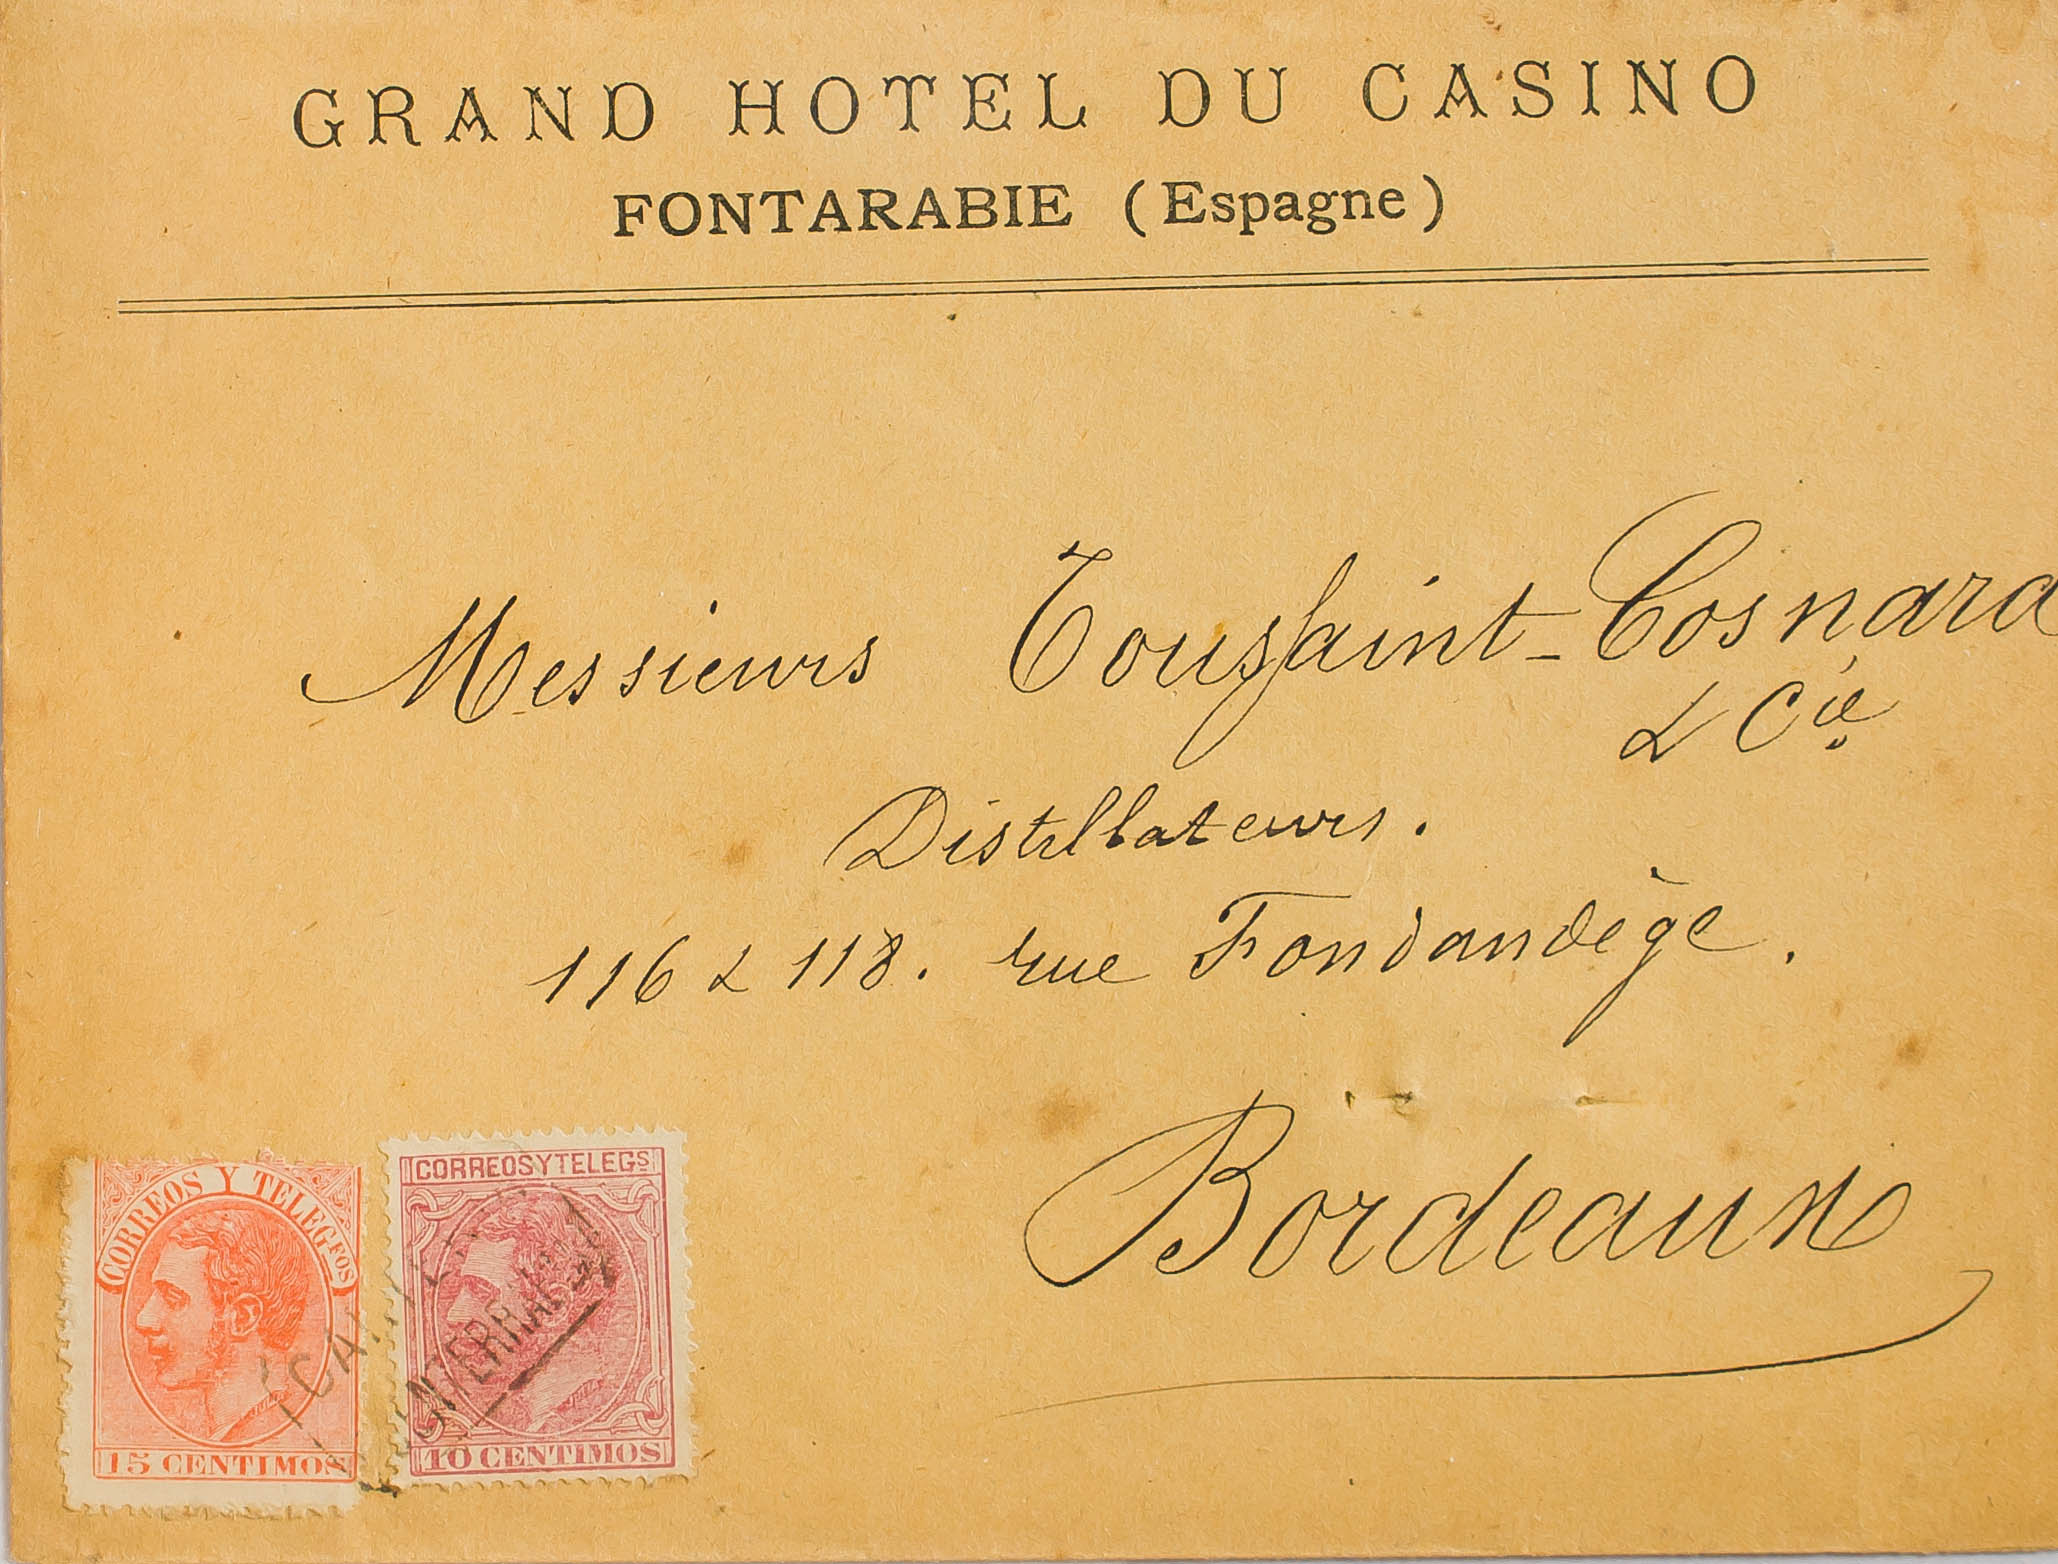 GRAND HOTEL DU CASINO
FONTARABIE (Espagne)
Messieurs Toussaint-Cosnard
& Cie
Distillateurs.
116 & 118. rue Fondandège.
Bordeaux
CORREOS Y TELEGFOS
15 CENTIMOS
CORREOS Y TELEGS
10 CENTIMOS